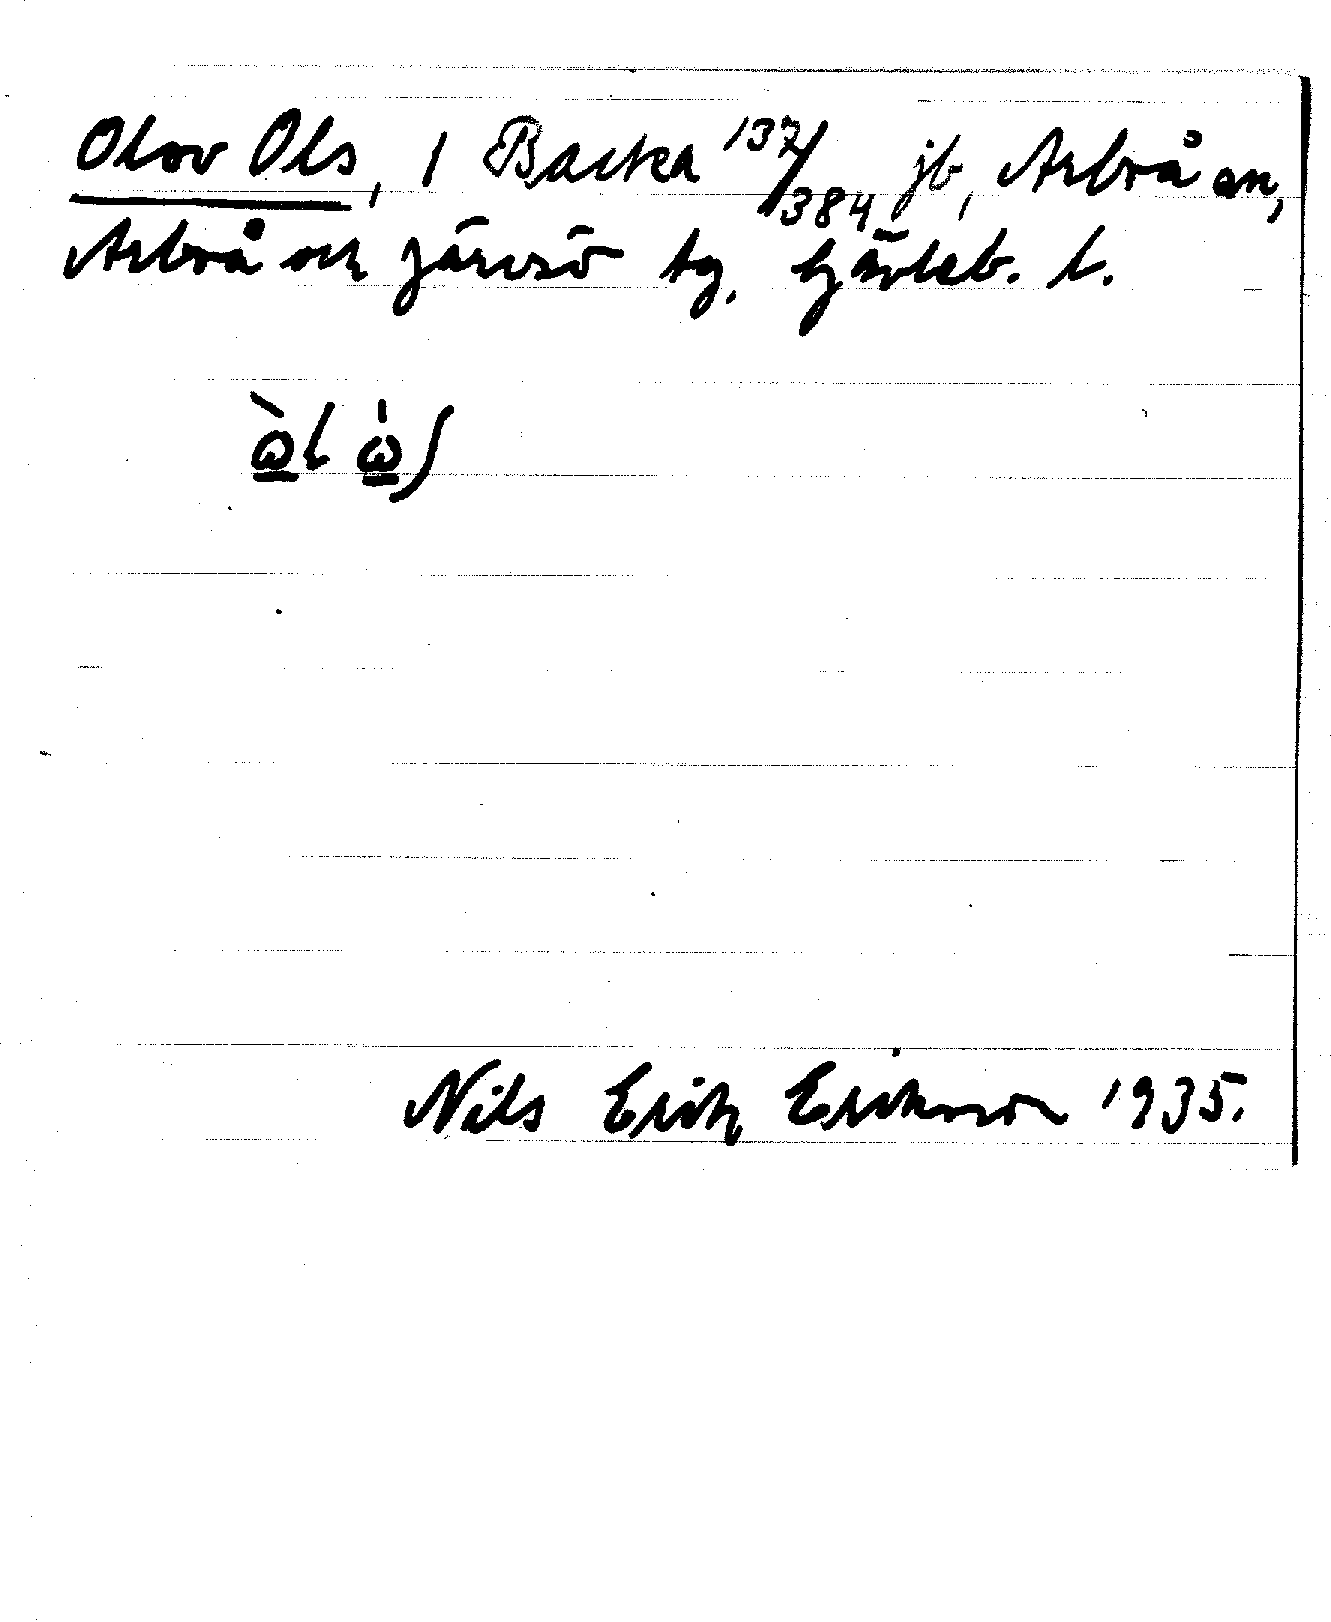 Olov Ols, 1 Backa 137/384 jb, Arbrå sn,
Arbrå och Järvsö tg, Gävleb. l.
Nils Erik Eriksson 1935.